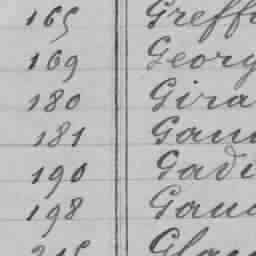 165 Greff
169 Georg
180 Gira
181 Gau
190 Gadi
198 Gau
215 Gla